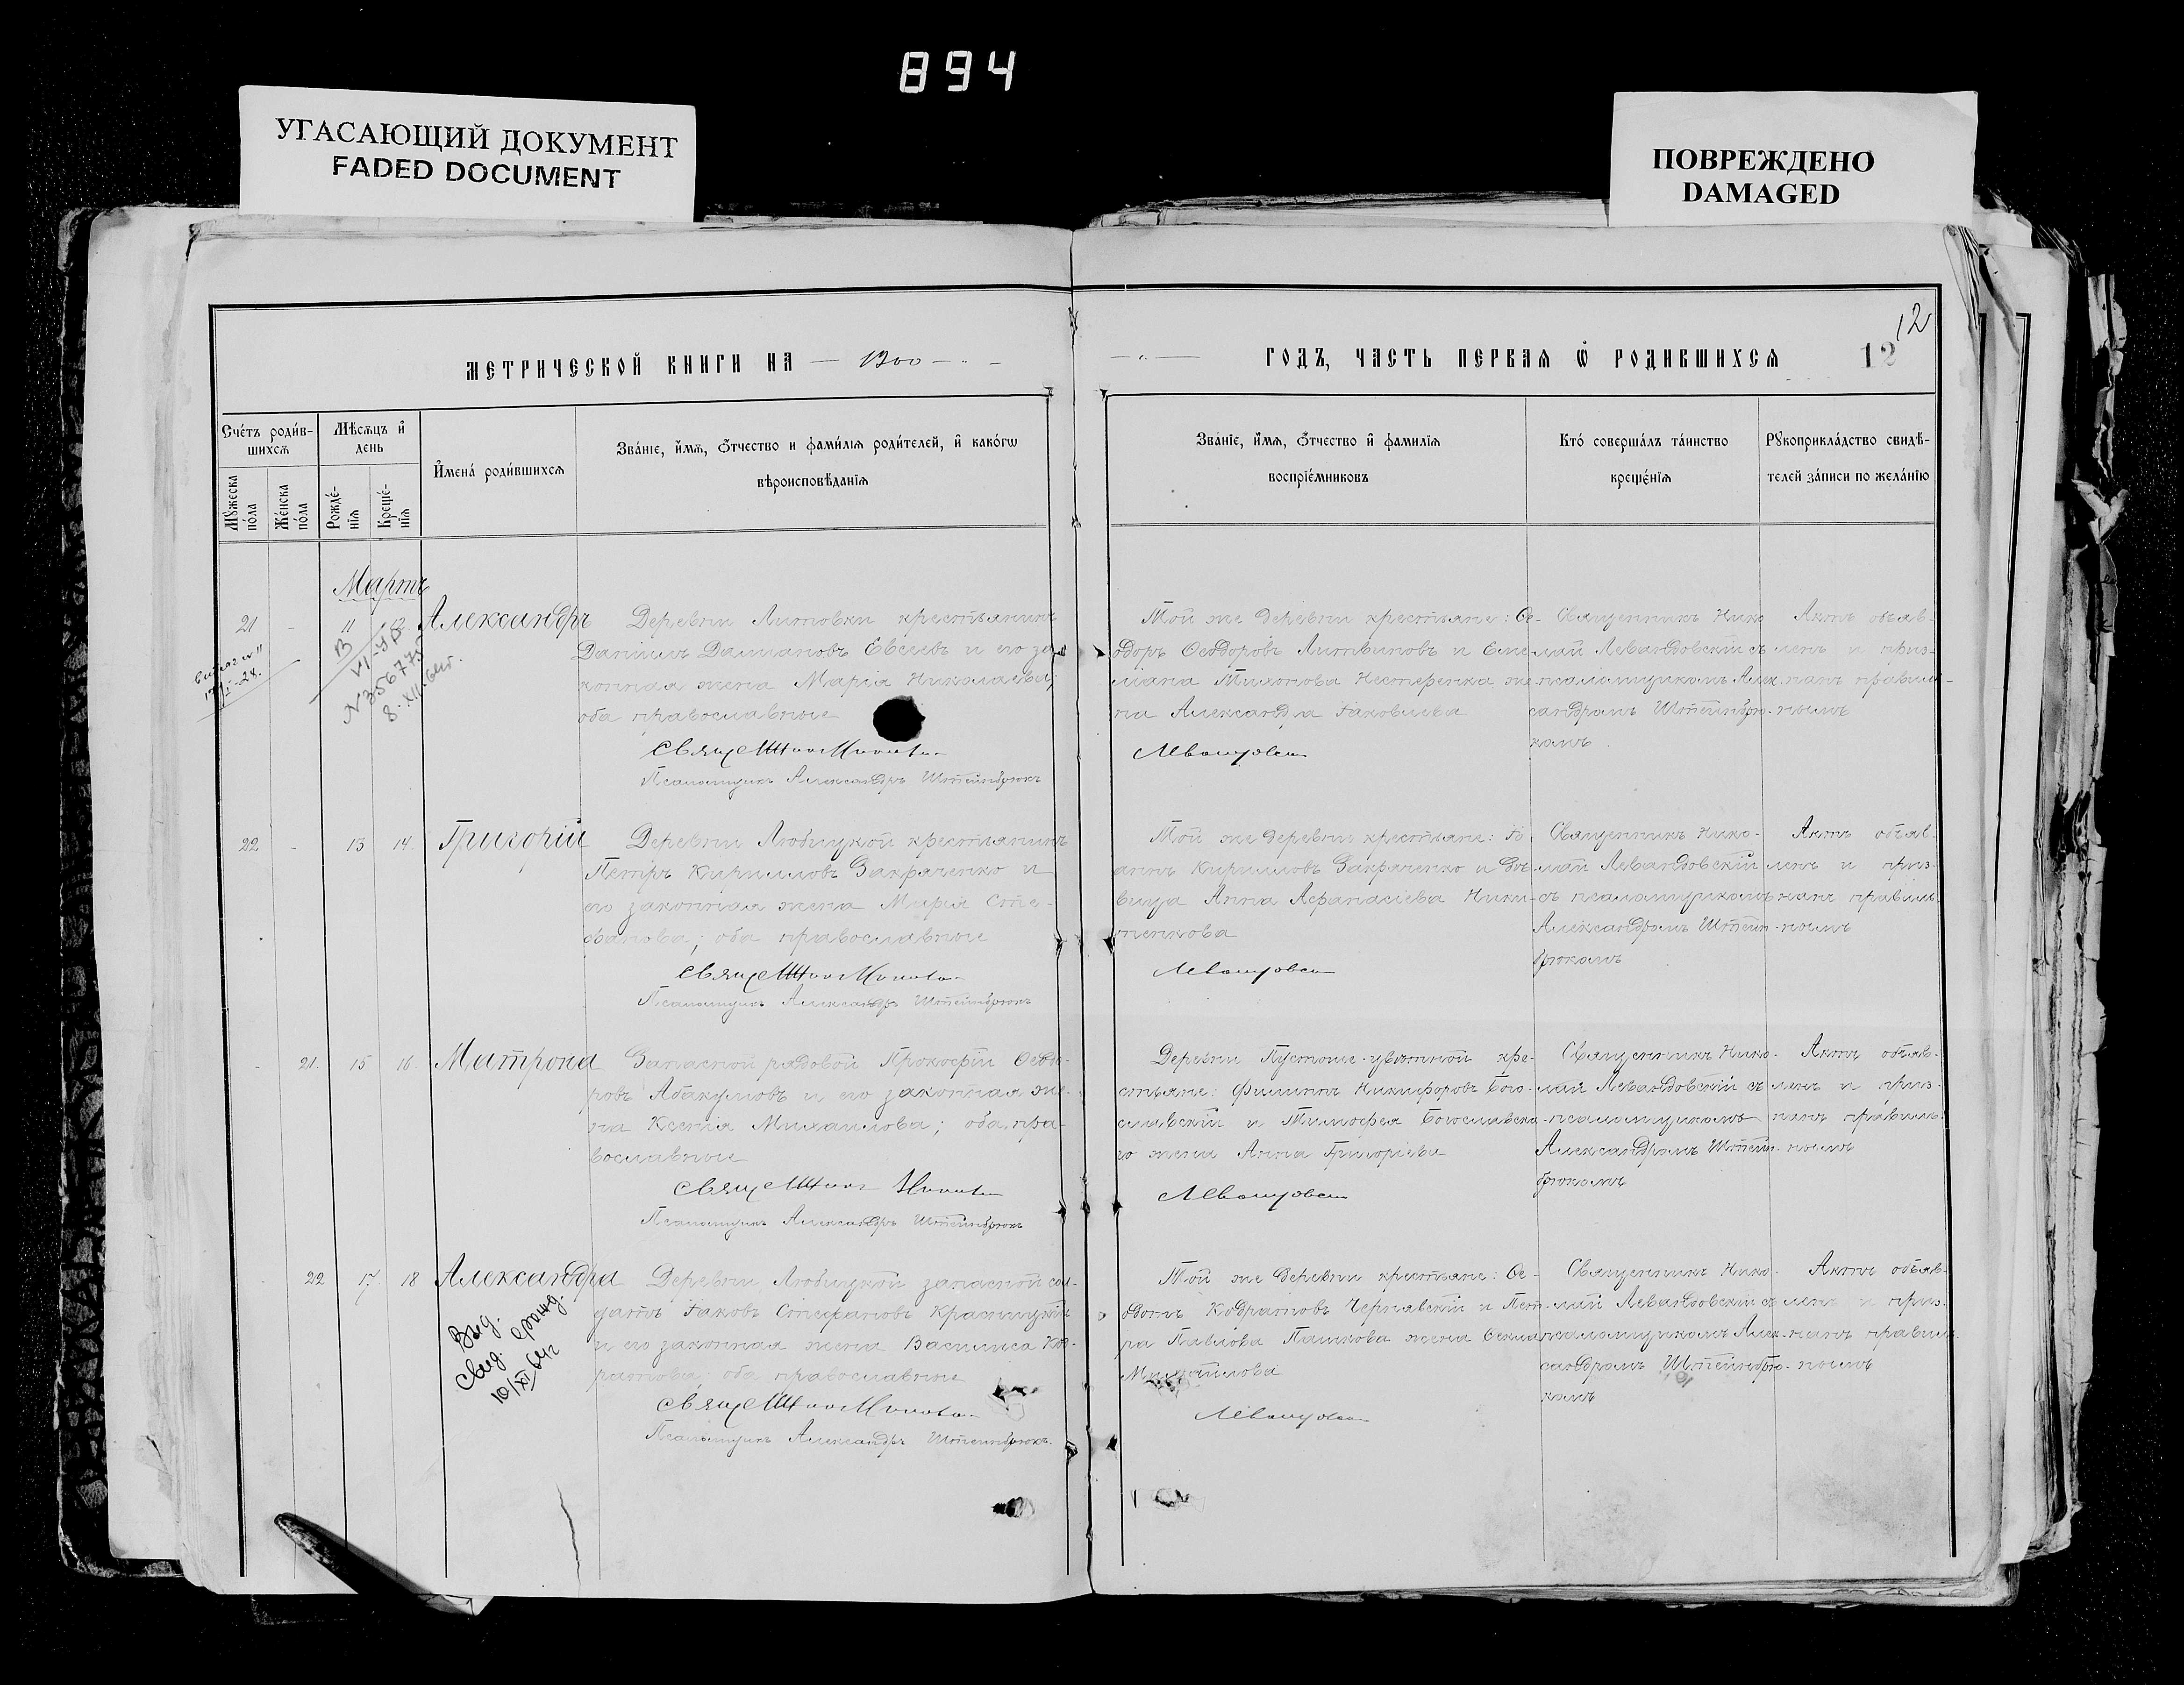 894
УГАСАЮЩИЙ ДОКУМЕНТ
FADED DOCUMENT
ПОВРЕЖДЕНО
DAMAGED
12
МЕТРИЧЕСКОЙ КНИГИ НА — 1900 —
ГОДЪ, ЧАСТЬ ПЕРВАЯ Ѡ РОДИВШИХСЯ 12
Счетъ родив-
шихся
Мѣсяцъ и
день
Мужеска
пола
Женска
пола
Рожде-
нія
Креще-
нія
Имена родившихся
Званіе, имя, отчество и фамилія родителей, и какогѡ
вѣроисповѣданія
Званіе, имя, отчество и фамилія
воспріемниковъ
Кто совершалъ таинство
крещенія
Рукоприкладство свидѣ-
телей записи по желанію
Мартъ
21 - 11 12 Александръ
Деревни Литовки крестьянинъ
Даніилъ Даміановъ Евсеевъ и его за-
конная жена Марія Николаева;
оба православные
Псаломщикъ Александръ Штейнбрюкъ
№ 356775
8.XII.64г.
Той же деревни крестьяне: Ѳе-
одоръ Ѳеодоровъ Литвиновъ и Еме
ліана Тихонова Нестеренка же-
на Александра Іаковлева
Священникъ Нико
лай Левандовскій съ
псаломщикомъ Алек-
сандромъ Штейнбрю-
комъ
Актъ объяв-
ленъ и приз-
нанъ правиль-
нымъ
22 - 13 14 Григорій
Деревни Любицкой крестьянинъ
Петръ Кирилловъ Захарченко и
его законная жена Марія Сте-
фанова; оба православные
Псаломщикъ Александръ Штейнбрюкъ
Той же деревни крестьяне: Іо-
аннъ Кирилловъ Захарченко и дѣ-
вица Анна Афанасіева Ники-
тенкова
Священникъ Нико-
лай Левандовскій
съ псаломщикомъ
Александромъ Штейн-
брюкомъ
Актъ объяв-
ленъ и приз-
нанъ правиль-
нымъ
- 21 15 16 Матрона
Запасной рядовой Прокофій Ѳеодо-
ровъ Абакумовъ и его законная же-
на Ксенія Михаилова; оба пра-
вославные
Псаломщикъ Александръ Штейнбрюкъ
Деревни Пустоше-увитной кре-
стьяне: Филиппъ Никифоровъ Бого-
славскій и Тимофея Богославска-
го жена Анна Григоріева
Священникъ Нико-
лай Левандовскій съ
псаломщикомъ
Александромъ Штейн-
брюкомъ
Актъ объяв-
ленъ и приз-
нанъ правиль-
нымъ
- 22 17 18 Александра
Выд.
свид.
10/XI 64г
Деревни Любицкой запасной сол-
датъ Іаковъ Стефановъ Красницкій
и его законная жена Василиса Код-
ратова; оба православные
Псаломщикъ Александръ Штейнбрюкъ.
Той же деревни крестьяне: Ѳе-
одотъ Кодратовъ Чернявскій и Пет-
ра Павлова Пашкова жена Ѳекла
Михайлова
Священникъ Нико-
лай Левандовскій съ
псаломщикомъ Алек-
сандромъ Штейнбрю-
комъ
Актъ объяв-
ленъ и приз-
нанъ правиль-
нымъ